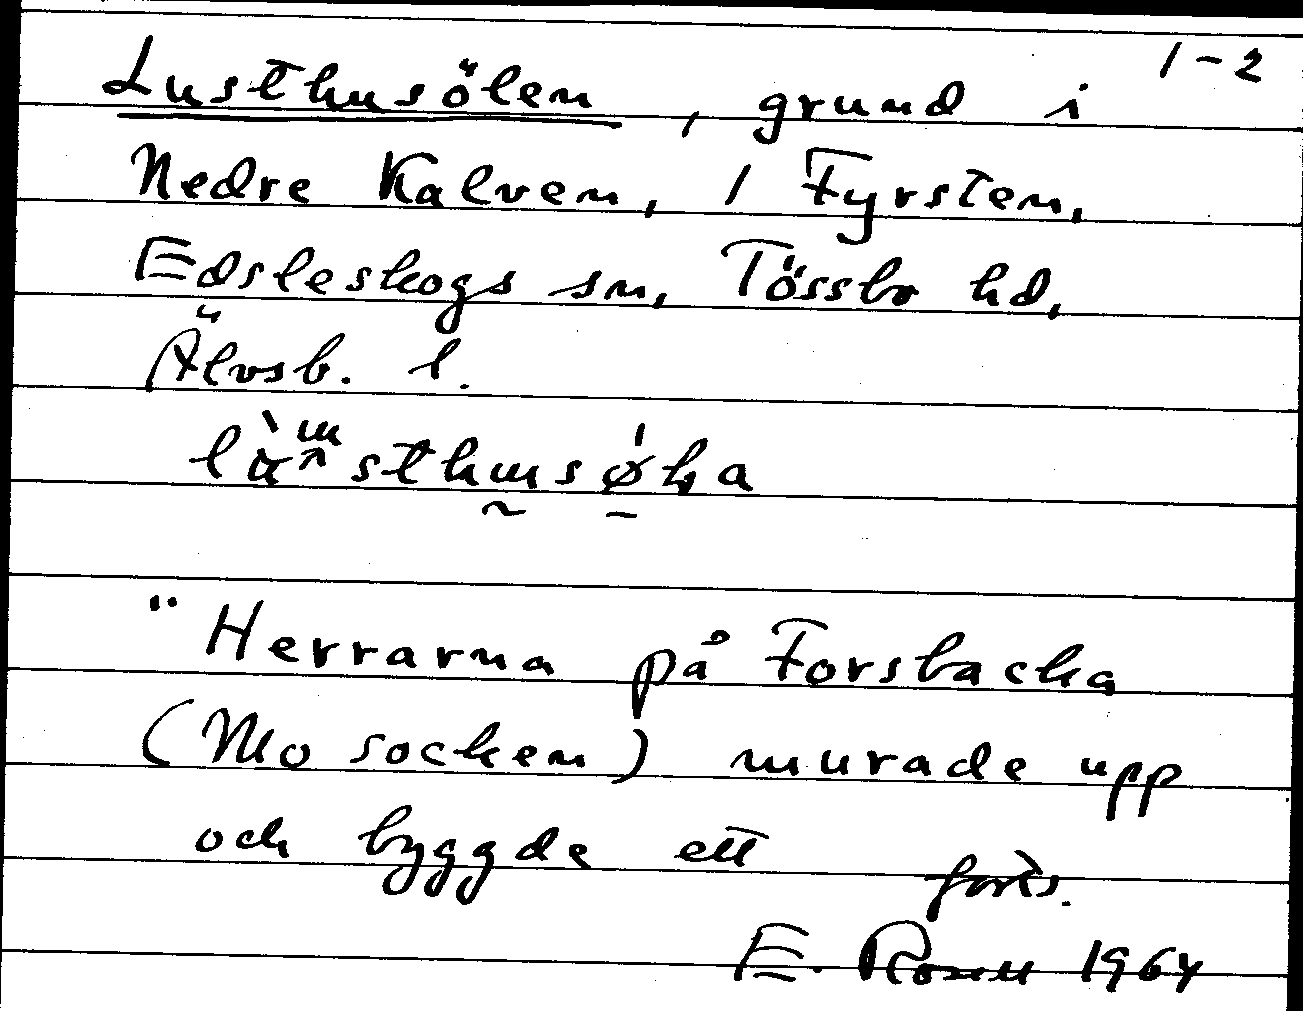 1-2
Lusthusölen, grund i
Nedre Kalven, / Fyrsten,
Edsleskogs sn, Tössbo hd,
Älvsb. l.
"Herrarna på Forsbacka
(Mo socken) murade upp
och byggde ett forts.
E. Rosell 1964